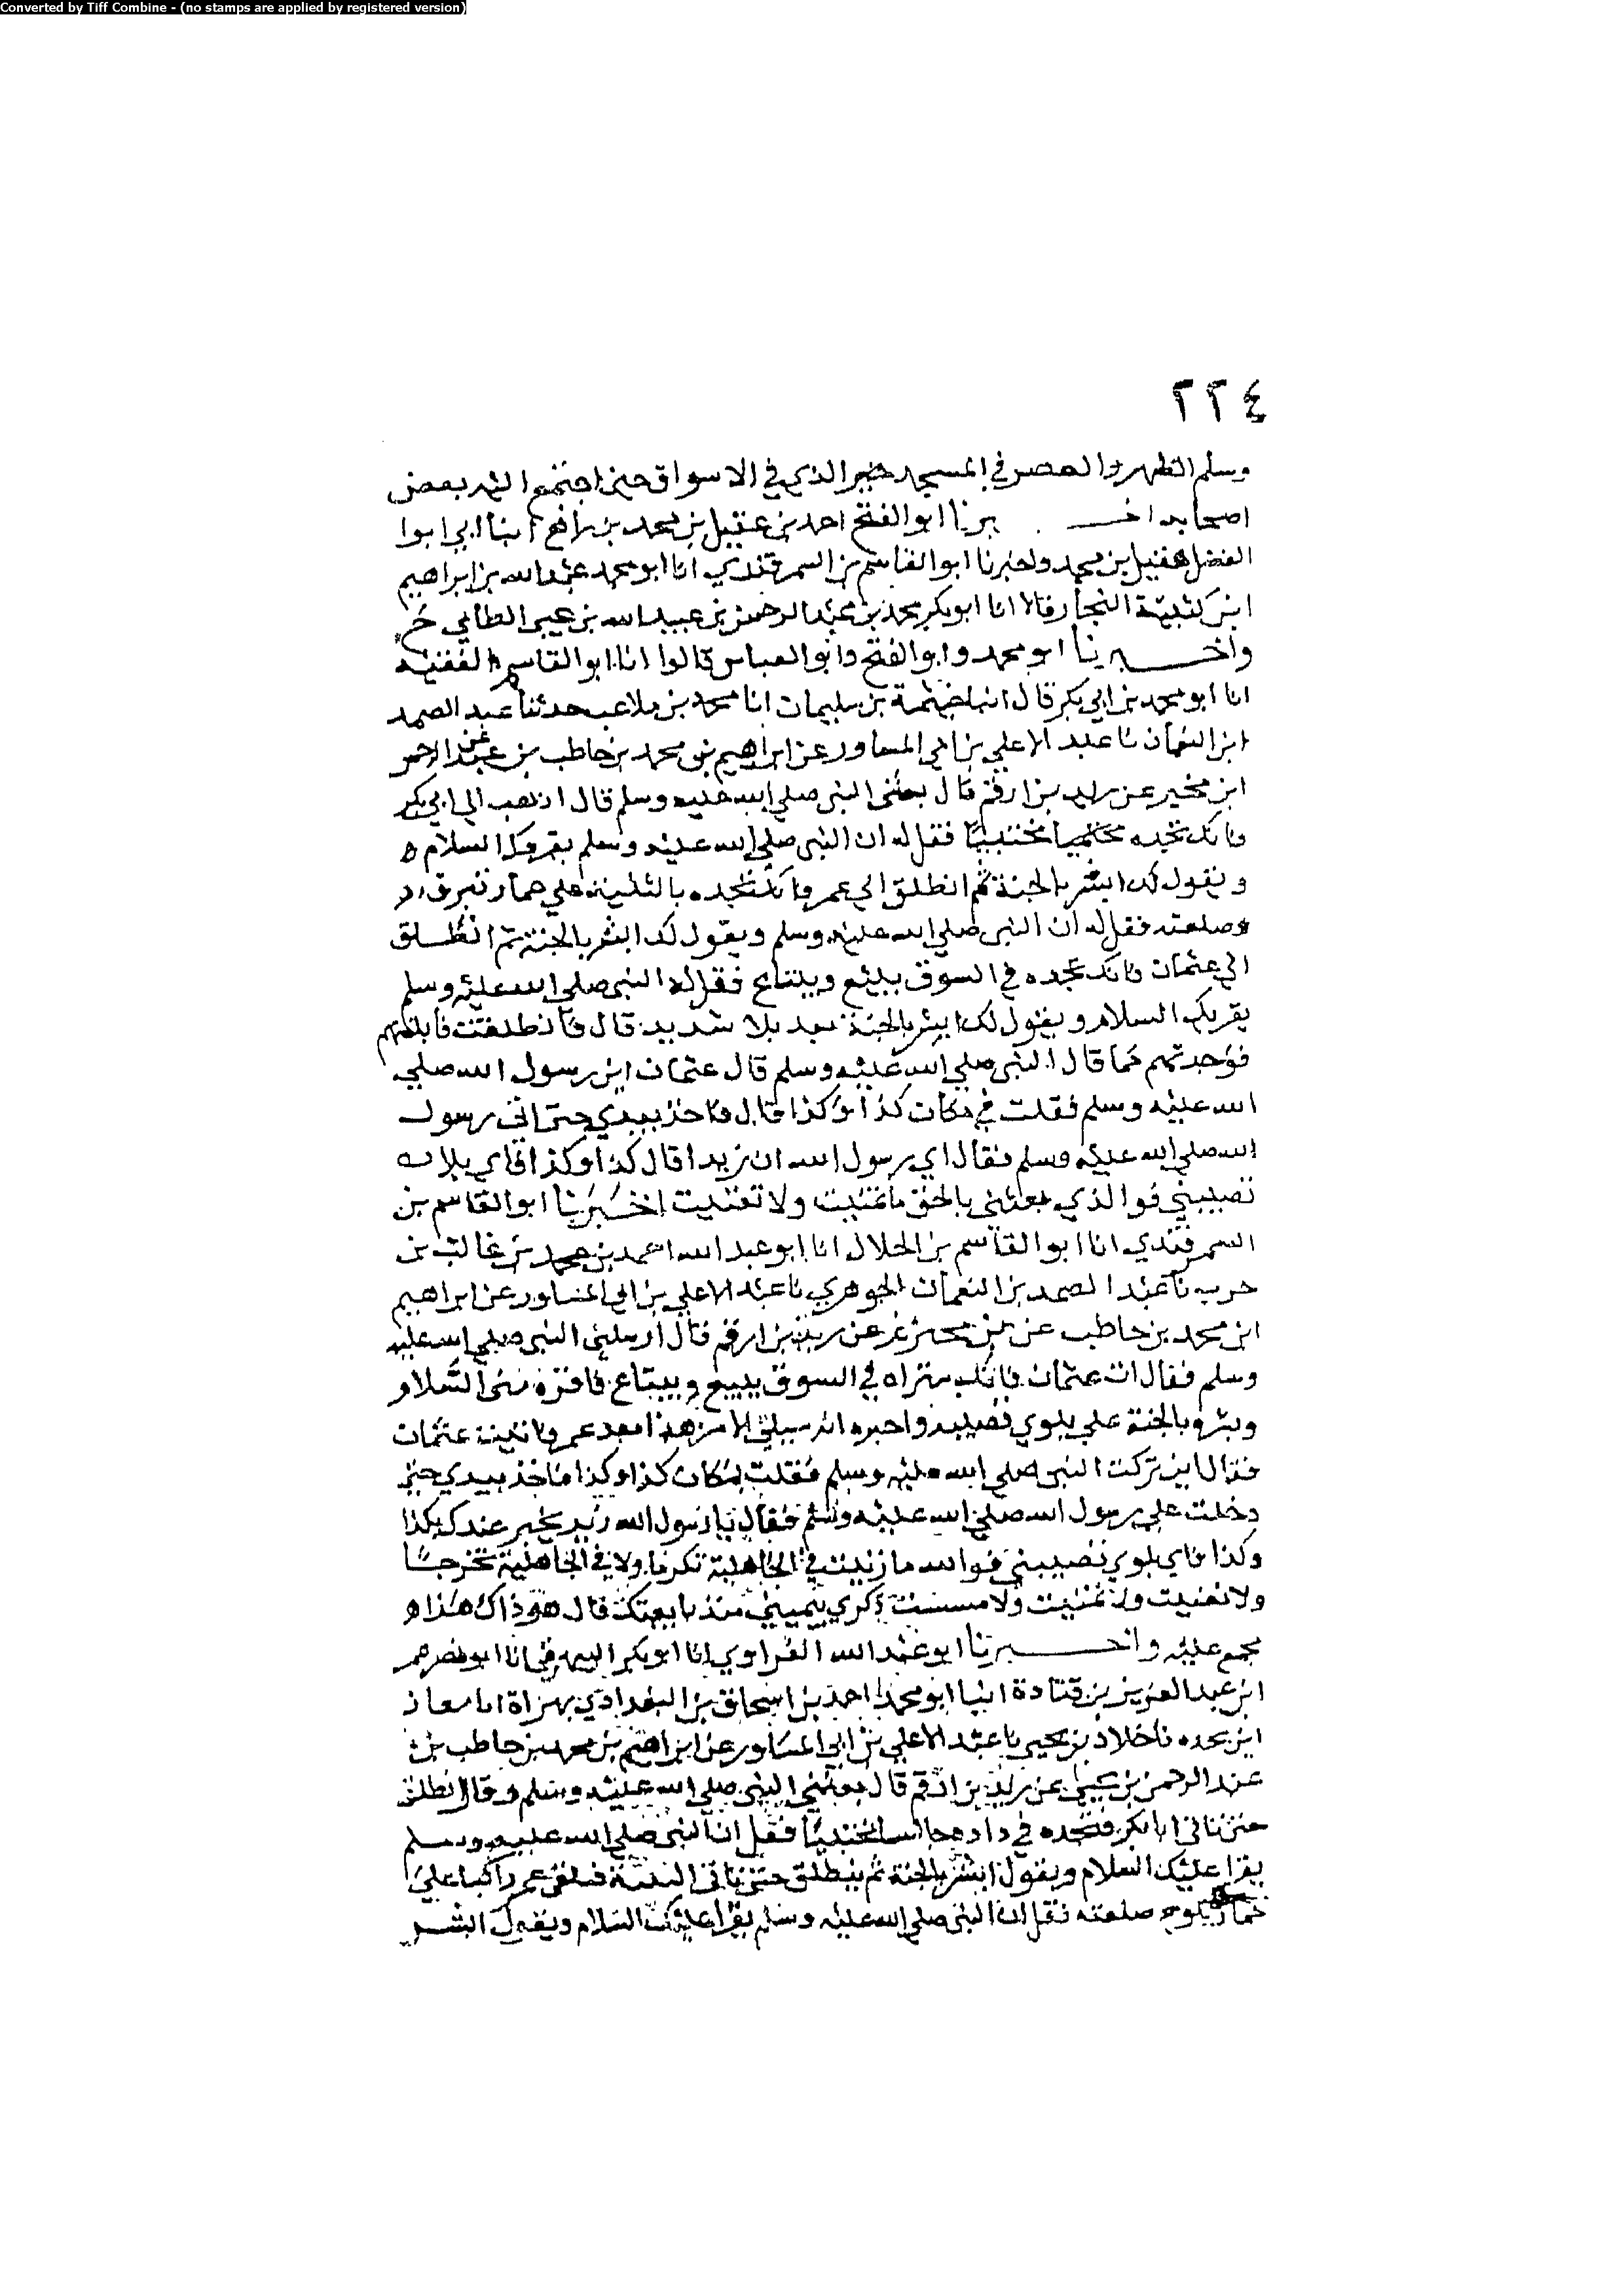 Converted by Tiff Combine - (no stamps are applied by registered version)
٢٢٤
وسلم الظهر والعصر في المسجد خبر الذي في الاسواق حين اجتمع اليه بعض
اصحابه اخـــبرنا ابو الفتح احمد بن عقيل بن محمد بن رافع انبا ابي ابوا
الفضل عقيل بن محمد واخبرنا ابو القاسم بن السمرقندي انا ابو محمد عبد الله بن ابراهيم
ابن كتيبة النجار قالا انا ابو بكر محمد بن عبد الرحمن بن عبيد الله بن يحيى الطاي ح
واخـــبرنا ابو محمد وابو الفتح وابو العباس قالوا انا ابو القاسم الفقيه
انا ابو محمد بن ابي بكر قال انبا خيثمة بن سليمان انا محمد بن ملاعب حدثنا عبد الصمد
ابن النعمان نا عبد الاعلي بن ابي المساور عن ابراهيم بن محمد بن حاطب عن عبد الرحمن
ابن محير عن زيد بن ارقم قال بعثني النبي صلي الله عليه وسلم قال اذهب الي ابي بكر
فانك تجده محتبيا فقل له ان النبي صلي الله عليه وسلم يقريك السلام ه
ويقول لك ابشر بالجنة ثم انطلق الي عمر فانك تجده بالثنية علي حمار تبرق
صلعته فقل له ان النبي صلي الله عليه وسلم ويقول لك ابشر بالجنة ثم انطلق
الي عثمان فانك تجده في السوق يبيع ويبتاع فقل له النبي صلي الله عليه وسلم
يقريك السلام ويقول لك ابشر بالجنة بعد بلا شديد قال فانطلقت فابلغتهم
فوجدتهم كما قال النبي صلي الله عليه وسلم قال عثمان اين رسول الله صلي
الله عليه وسلم فقلت في مكان كذا وكذا قال فاخذ بيدي حتى اتي رسول
الله صلي الله عليه وسلم فقال اي رسول الله ان زيدا قال كذا وكذا فاي بلاء
تصيبني فوالذي بعثني بالحق ما تمنيت ولا تغنيت اخـبرنا ابو القاسم بن
السمرقندي انا ابو القاسم بن الخلال انا ابو عبد الله احمد بن محمد بن غالب بن
حرب نا عبد الصمد بن النعمان الجوهري نا عبد الاعلي بن ابي المساور عن ابراهيم
ابن محمد بن حاطب عن زيد بن ارقم قال ارسلني النبي صلي الله عليه
وسلم فقال ات عثمان فانك ستراه في السوق يبيع ويبتاع فاقره مني السلام
وبشره بالجنة علي بلوي تصيبه واخبره انه سيلي الامر هذا بعد عمر فاتيت عثمان
فقال اين تركت النبي صلي الله عليه وسلم فقلت بمكان كذا وكذا فاخذ بيدي حتى
دخلت علي رسول الله صلي الله عليه وسلم فقال يا رسول الله زيد يخبر عندك بكذا
وكذا فاي بلوي تصيبني فوالله ما زنيت في الجاهلية تكرما ولا في الجاهلية تحرجا
ولا تغنيت ولا تمنيت ولا مسست ذكري بيميني منذ بايعتك قال هو ذاك هذا ه
مجمع عليه واخـــبرنا ابو عبد الله الفراوي انا ابو بكر البيهقي انا ابو نصر عمر
ابن عبد العزيز بن قتادة انبا ابو محمد احمد بن اسحاق بن البغدادي بهراة انا معاذ
ابن نجده نا خلاد بن يحيى نا عبد الاعلي بن ابي المساور عن ابراهيم بن محمد بن حاطب بن
عبد الرحمن بن عن زيد بن ارقم قال بعثني النبي صلي الله عليه وسلم وقال انطلق
حتى تاتي ابا بكر فتجده في داره جالسا محتبيا فقل ان النبي صلي الله عليه وسلم
يقرا عليك السلام ويقول ابشر بالجنة ثم ينطلق حتى تاتي الثنية فتلقى عمر راكبا علي
حمار تلوح صلعته فقل ان النبي صلي الله عليه وسلم يقرا عليك السلام ويقول ابشر